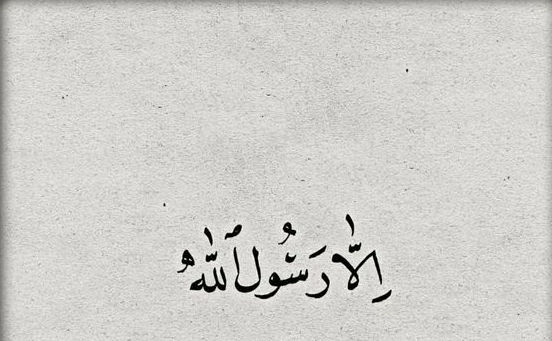 اِلَّا رَسُولَ ٱللّٰهُ